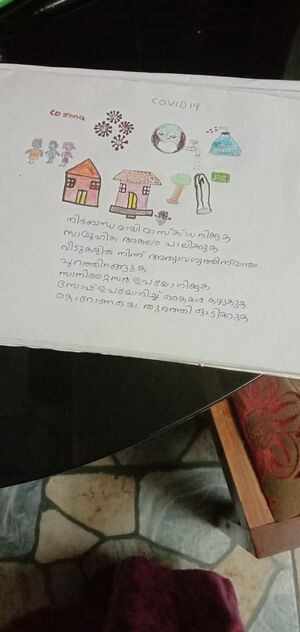 COVID19
corona
നിർബന്ധമായി മാസ്ക് ധരിക്കുക
സാമൂഹിക അകലം പാലിക്കുക
വീടുകളിൽ നിന്ന് അത്യാവശ്യത്തിന് മാത്രം
പുറത്തിറങ്ങുക
സാനിറ്റൈസർ ഉപയോഗിക്കുക
സോപ്പ് ഉപയോഗിച്ച് കൈകൾ കഴുകുക
കൊറോണയെ തുരത്തി ഓടിക്കുക